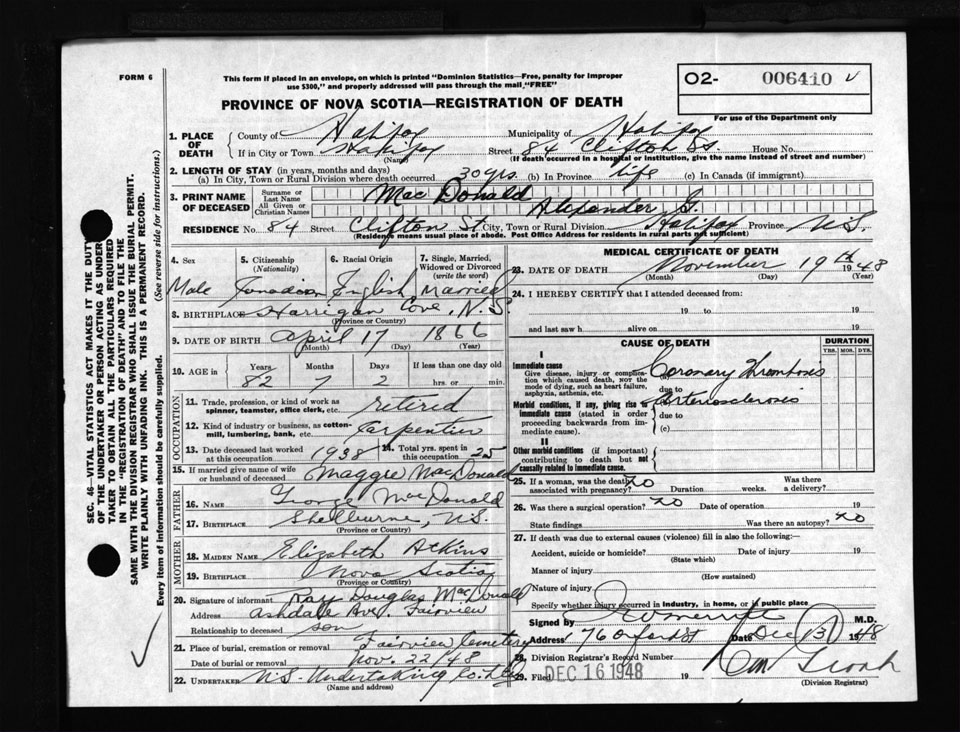 FORM 6
This form if placed in an envelope, on which is printed "Dominion Statistics—Free, penalty for improper
use $300," and properly addressed will pass through the mail, "FREE"
O2- 006410
For use of the Department only
PROVINCE OF NOVA SCOTIA—REGISTRATION OF DEATH
1. PLACE OF DEATH
County of Halifax Municipality of Halifax
If in City or Town Halifax Street 84 Clifton St. House No.
(Name) (If death occurred in a hospital or institution, give the name instead of street and number)
2. LENGTH OF STAY (in years, months and days)
(a) In City, Town or Rural Division where death occurred 30 yrs. (b) In Province life (c) In Canada (if immigrant)
3. PRINT NAME OF DECEASED
Surname or Last Name MacDonald
All Given or Christian Names Alexander G.
RESIDENCE No. 84 Street Clifton St. City, Town or Rural Division Halifax Province N.S.
(Residence means usual place of abode. Post Office Address for residents in rural parts not sufficient)
4. Sex 5. Citizenship (Nationality) 6. Racial Origin 7. Single, Married, Widowed or Divorced (write the word)
Male Canadian English Married
8. BIRTHPLACE Harrigan Cove, N.S.
(Province or Country)
9. DATE OF BIRTH April 17 1866
(Month) (Day) (Year)
10. AGE in Years Months Days If less than one day old
82 7 2 hrs. or min.
OCCUPATION
11. Trade, profession, or kind of work as spinner, teamster, office clerk, etc. retired
12. Kind of industry or business, as cotton-mill, lumbering, bank, etc. Carpentier
13. Date deceased last worked at this occupation 1938 14. Total yrs. spent in this occupation 25
15. If married give name of wife or husband of deceased Maggie MacDonald
FATHER
16. NAME George MacDonald
17. BIRTHPLACE Shelburne, N.S.
(Province or Country)
MOTHER
18. MAIDEN NAME Elizabeth Atkins
19. BIRTHPLACE Nova Scotia
(Province or Country)
20. Signature of informant Ray Douglas MacDonald
Address Ashdale Ave. Fairview
Relationship to deceased son
21. Place of burial, cremation or removal Fairview Cemetery
Date of burial or removal Nov. 22/48
22. UNDERTAKER N.S. Undertaking Co. Ltd
(Name and address)
MEDICAL CERTIFICATE OF DEATH
23. DATE OF DEATH November 19th 1948
(Month) (Day) (Year)
24. I HEREBY CERTIFY that I attended deceased from:
19 to 19
and last saw h alive on 19
CAUSE OF DEATH DURATION
YRS. MOS. DYS.
I
Immediate cause
Give disease, injury or complication which caused death, not the mode of dying, such as heart failure, asphyxia, asthenia, etc.
Coronary Thrombosis
due to
Morbid conditions, if any, giving rise to immediate cause (stated in order proceeding backwards from immediate cause).
Arteriosclerosis
due to
(c)
II
Other morbid conditions (if important) contributing to death but not causally related to immediate cause.
25. If a woman, was the death associated with pregnancy? No Duration weeks. Was there a delivery?
26. Was there a surgical operation? No Date of operation 19
State findings Was there an autopsy? No
27. If death was due to external causes (violence) fill in also the following:—
Accident, suicide or homicide? Date of injury 19
(State which)
Manner of injury
(How sustained)
Nature of injury
Specify whether injury occurred in Industry, in home, or in public place
Signed by M.D.
Address 176 Oxford St Date Dec 13 1948
28. Division Registrar's Record Number
29. Filed DEC 16 1948 19
(Division Registrar)
SEC. 46—VITAL STATISTICS ACT MAKES IT THE DUTY
OF THE UNDERTAKER OR PERSON ACTING AS UNDERTAKER
TO OBTAIN ALL THE PARTICULARS REQUIRED
IN THE "REGISTRATION OF DEATH" AND TO FILE THE
SAME WITH THE DIVISION REGISTRAR WHO SHALL ISSUE THE BURIAL PERMIT.
WRITE PLAINLY WITH UNFADING INK. THIS IS A PERMANENT RECORD.
Every item of information should be carefully supplied. (See reverse side for instructions.)